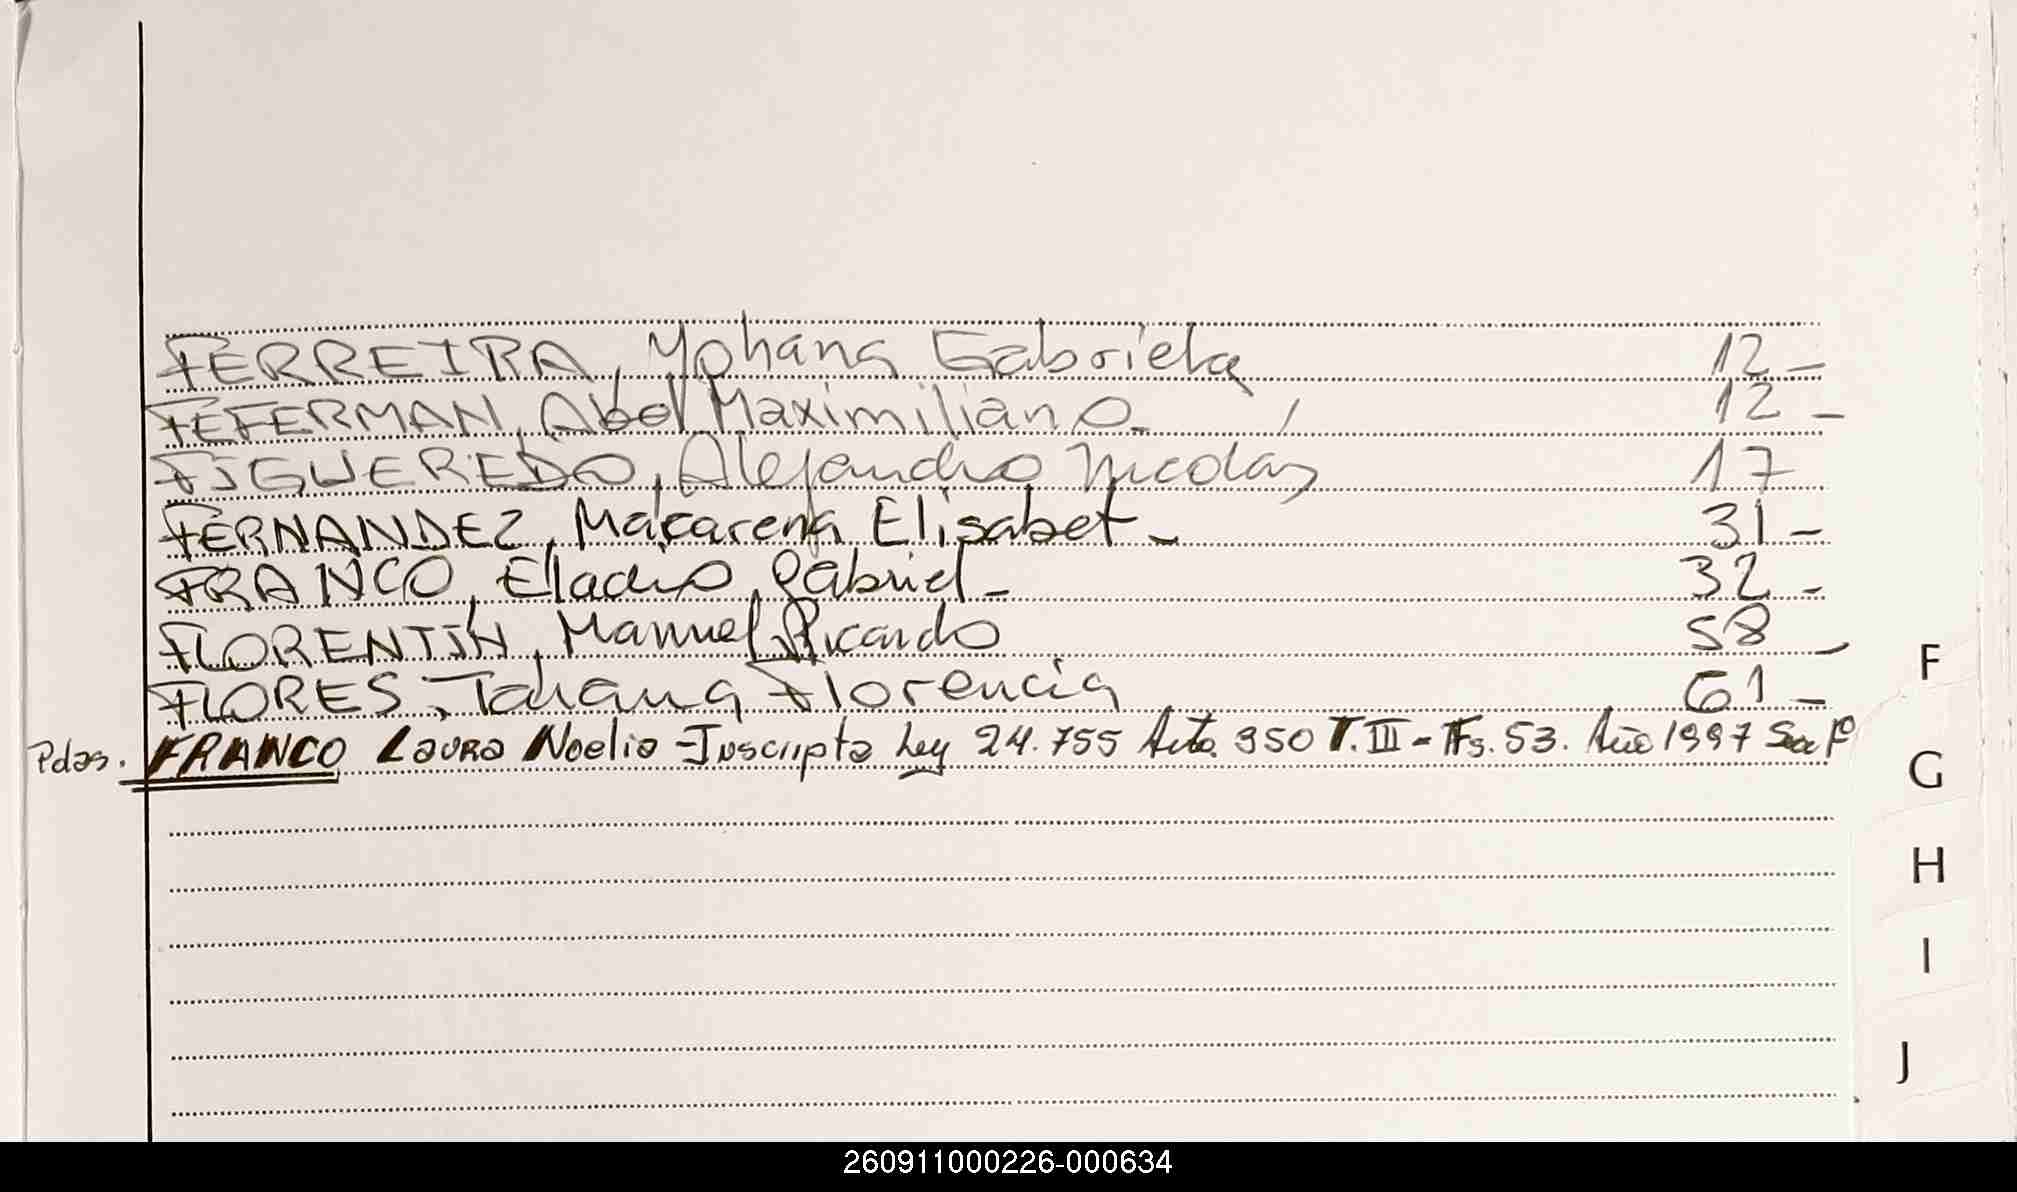 FERREIRA, Yohana Gabriela 12 -
FEFERMAN, Abel Maximiliano - 12 -
FIGUEREDO, Alejandro Nicolás 17
FERNANDEZ, Macarena Elisabet - 31 -
FRANCO, Eladio Gabriel - 32 -
FLORENTÍN, Manuel Ricardo 58 -
FLORES, Tahana Florencia 61 -
Pdas. FRANCO Laura Noelia - Inscripta Ley 24.755 Acta 350 T. III - Fs. 53. Año 1997
F
G
H
I
J
260911000226-000634